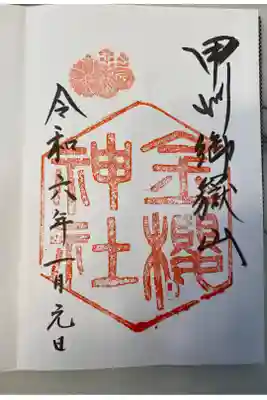 甲州御嶽山
金櫻
神社
令和六年月元日